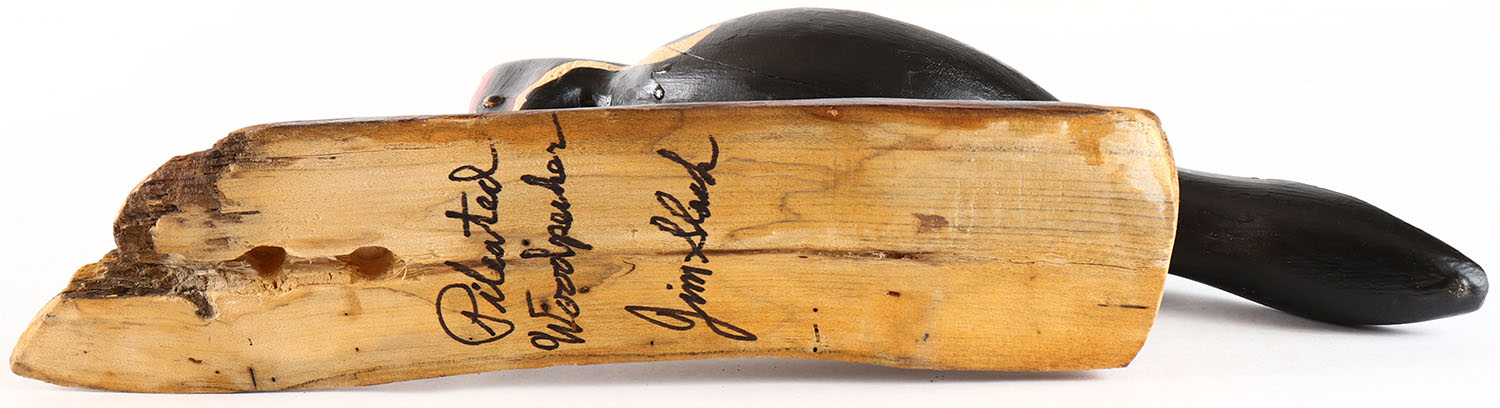 Pileated
Woodpecker
Jim Slack